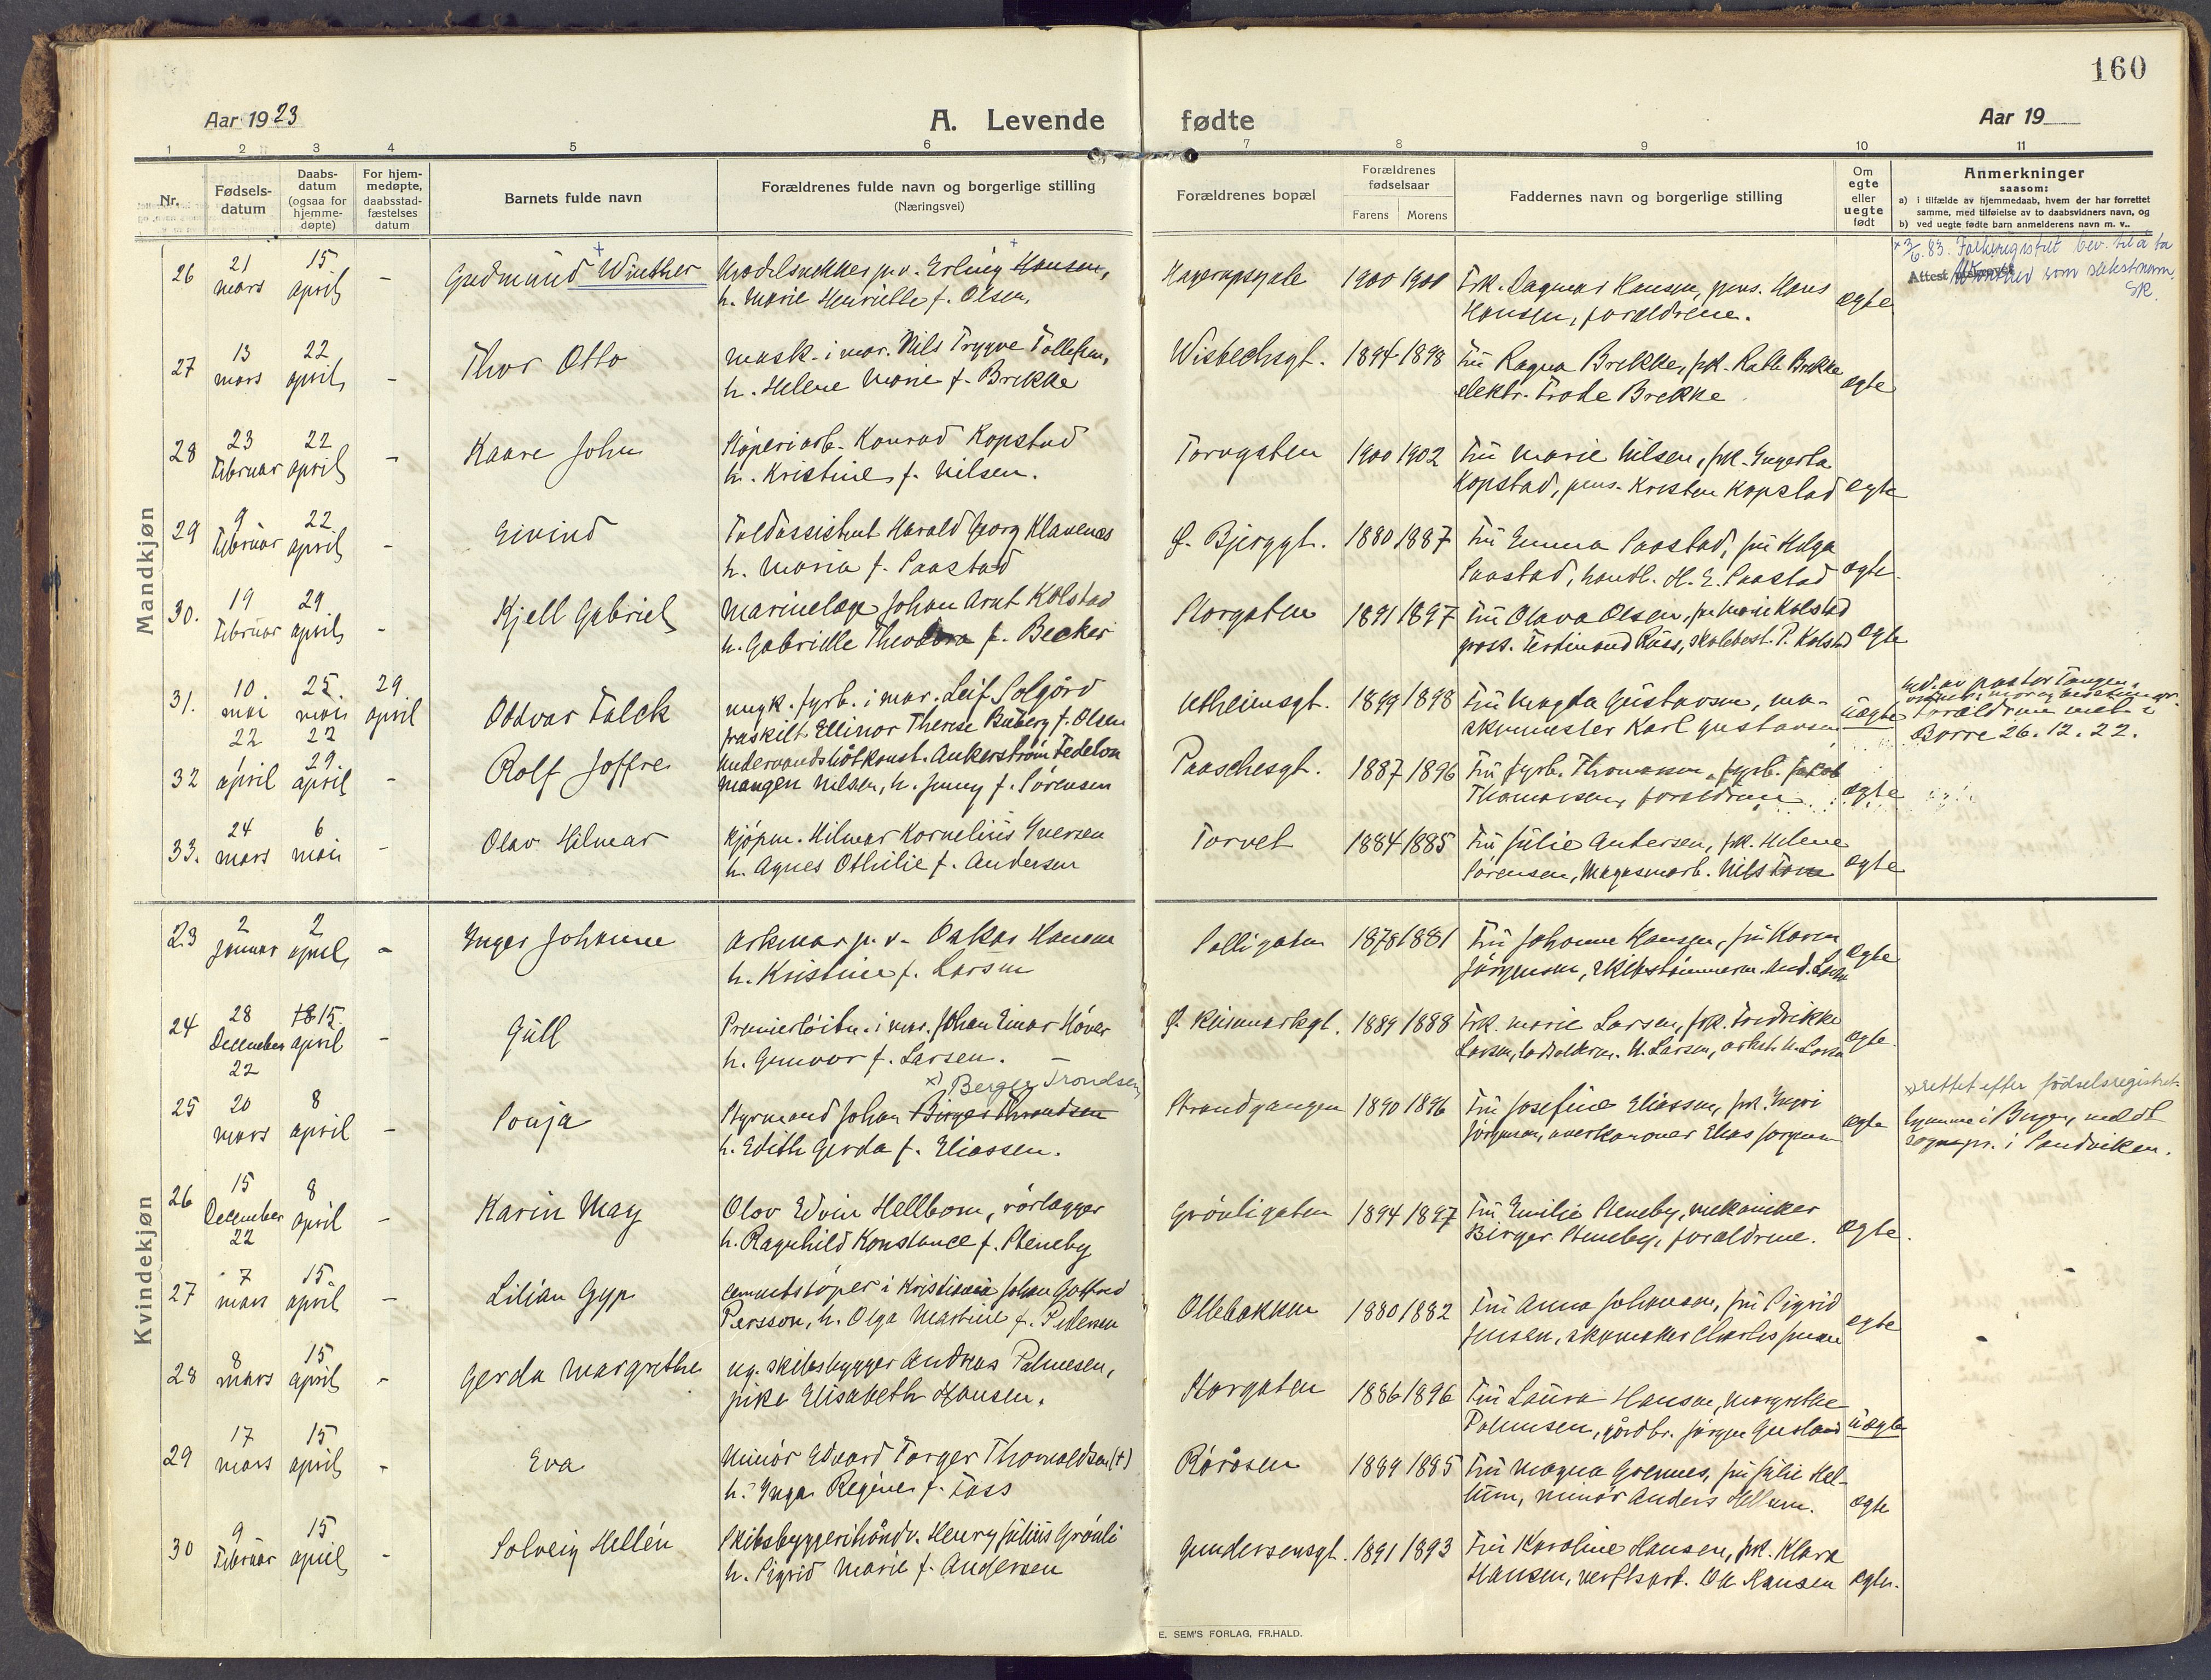 160
Aar 1923
A. Levende fødte
Aar 19
1 2 3 4 5 6 7 8 9 10 11
Nr.
Fødsels-
datum
Daabs-
datum
(ogsaa for
hjemme-
døpte)
For hjem-
medøpte,
daabsstad-
fæstelses
datum
Barnets fulde navn
Forældrenes fulde navn og borgerlige stilling
(Næringsvei)
Forældrenes bopæl
Forældrenes
fødselsaar
Farens Morens
Faddernes navn og borgerlige stilling
Om
egte
eller
uegte
født
Anmerkninger
saasom:
a) i tilfælde av hjemmedaab, hvem der har forrettet
samme, med tilføielse av to daabsvidners navn, og
b) ved uegte fødte barn anmelderens navn m. v..
Mandkjøn
26 21 mars 15 april - Gudmund Winther
Modelsnekker p.v. Erling Hansen,
h. Marie Henriette f. Olsen.
1900 1901
Frk. Dagmar Hansen, pens. Hans
Hansen, forældrene.
ægte
Attest
som slektsnavn.
27 13 mars 22 april - Thor Otto
mask. i mar. Nils Trygve Tollefsen,
h. Helene Marie f. Brekke
Wisbechsgt. 1894 1898
Fru Ragna Brekke, frk. Brekke
elektr. Brekke
ægte
28 23 Februar 22 april - Kaare John
Støperiarb. Konrad Kopstad
h. Kristine f. Nilsen.
Torvgaten 1900 1902
Fru Marie Nilsen, frk. Ingerta
Kopstad, pens. Kristen Kopstad
ægte
29 9 Februar 22 april - Eivind
Toldassistent Harald Georg Klavenæs
h. Maria f. Paastad
Ø. Bjerggt. 1880 1887
Fru Emma Paastad, fru Helga
Paastad, handl. H. E. Paastad
ægte.
30. 19 Februar 29 april - Kjell Gabriel
Marinelæge Johan Arnt Kolstad
h. Gabrielle Theodora f. Becker
Storgaten 1891 1897
Fru Olava Olsen, fru Marie Kolstad
gross. Ferdinand Riis, skolebest. P. Kolstad
ægte
31. 10. mai 22 25. mai 22 29 april Oddvar Falck
ungk. fyrb. i mar. Leif Solgård
fraskilt Ellinor Therese f. Olsen
1899 1898
Fru Magda Gustavsen, ma-
skinmester Karl Gustavsen
uægte
forældrene viet i
Borre 26.12.22.
32 1 april 29. april - Rolf Joffre
Undervandsbåtkonst. Ankerstrøm Fedelon
Mangen Nilsen, h. Jenny f. Sørensen
Paaschesgt. 1887 1896
Fru fyrb. Thomassen, fyrb. Jakob
Thomassen, forældrene
ægte
33. 24 mars 6 mai - Olav Hilmar
Kjøpm. Hilmar Kornelius Iversen
h. Agnes Othilie f. Andersen
Torvet 1884 1885
Fru Julie Andersen, frk. Helene
Sørensen, Magasinarb. Nils
ægte
Kvindekjøn
23 2 januar 2 april - Inger Johanne
Oskar Hansen
h. Kristine f. Larsen
1878 1881
Fru Johanne Hansen, fru Karen
Jørgensen, skibstømmerm. And. Larsen
ægte
24 28 December 22 15. april - Gull
Premierløitn. i mar. Johan Einar Høver
h. Gunvor f. Larsen.
1889 1888
Frk. Marie Larsen, frk. Fredrikke
Larsen,
ægte.
25 20 mars 8 april - Sonja
x) Berger Trondsen
Styrmand Johan Birger Throndsen
h. Edith Gerda f. Eliassen.
Strandgangen 1890 1896
Fru Josefine Eliassen, frk. Ingri
Jørgensen, Elias Jørgensen
ægte
x) rettet efter fødselsregistret.
hjemme i Bergen, meldt
sognepr. i Sandviken.
26 15 December 22 8 april - Karin May
Olov Edvin Hellbom, rørlægger
h. Ragnhild Konstance f. Steneby
Grønligaten 1894 1897
Fru Emilie Steneby, mekaniker
Birger Steneby, forældrene.
ægte.
27 7 mars 15. april - Lilian Gyp
Cementstøper i Kristiania Johan Gotfred
Persson, h. Olga Martine f. Pedersen
Ollebakken 1880 1882
Fru Anna Johansen, fru Sigrid
Jensen, skomaker Charles Jensen
ægte
28 8 mars 15 april - Gerda Margrethe
ug. skibsbygger Andreas Palmesen,
pike Elisabeth Hansen.
Storgaten 1886 1896
Fru Laura Hansen, Margrethe
Palmesen, gårdbr. Jørgen
uægte
29 17 mars 15 april - Eva
Minør Edvard Torger Thorvaldsen (+)
h. Inga Regine f. Foss
Råråsen 1889 1885
Fru Magna Grennes, fru Julie Hel-
lum, minør Anders Hellum.
ægte
30 9 Februar 15 april - Solveig Hellén
Skibsbyggerihåndv. Henry Julius Grønli
h. Sigrid Marie f. Andersen
Gundersensgt. 1891 1893
Fru Karoline Hansen, frk. Klara
Hansen, verftsarb. Hansen
ægte.
E. SEM'S FORLAG, FR.HALD.